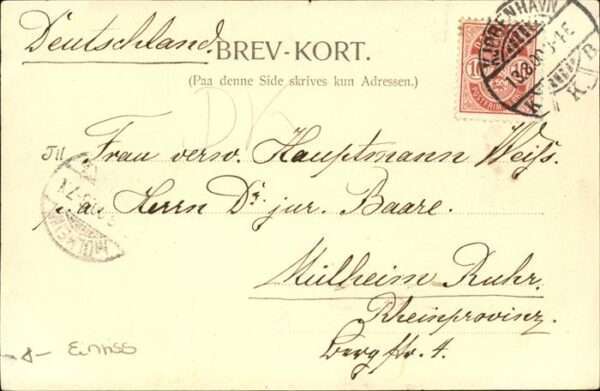 Deutschland.
BREV-KORT.
(Paa denne Side skrives kun Adressen.)
KJØBENHAVN
10
K
B
DK
Til Frau verw. Hauptmann Weiss.
Herrn Dr. jur. Baare.
Mülheim Ruhr.
Rheinprovinz.
Bergstr. 4.
MÜLHEIM